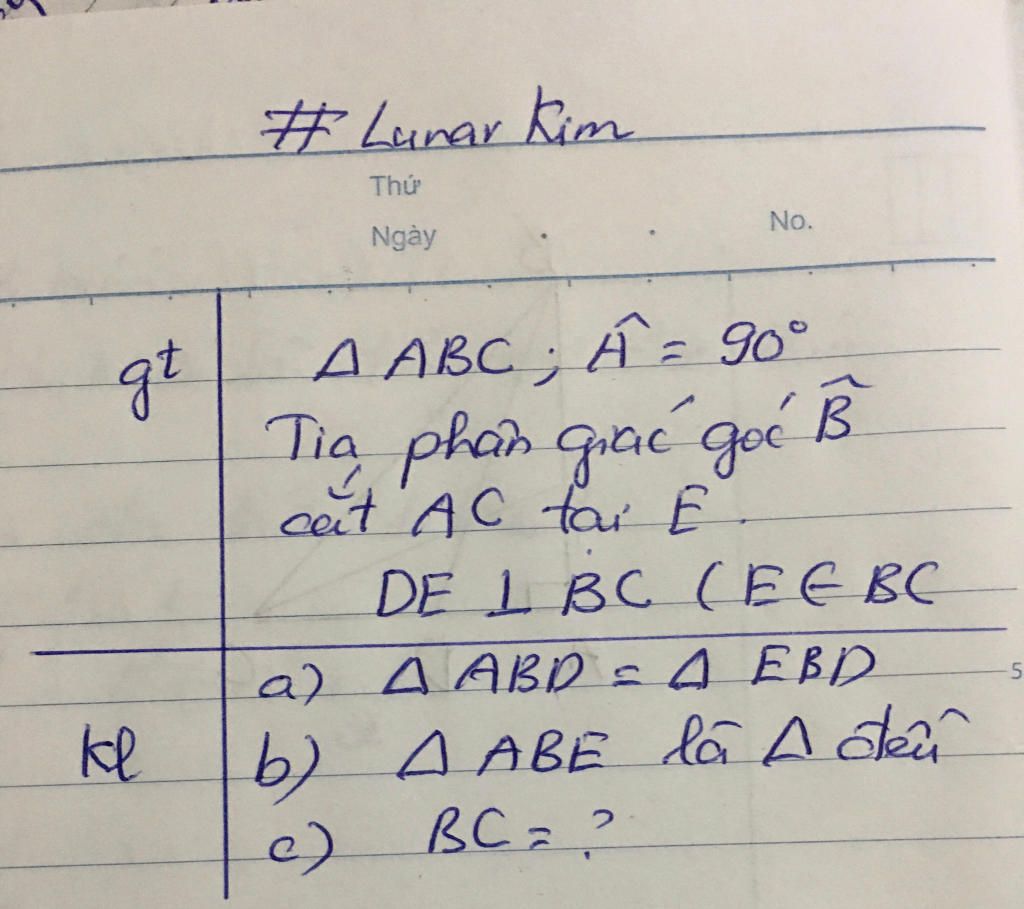 # Lunar Kim
Thứ
Ngày
No.
gt
Δ ABC ; Â = 90°
Tia phân giác góc B̂
cắt AC tại E .
DE ⊥ BC ( E ∈ BC
kl
a) Δ ABD = Δ EBD
5
b) Δ ABE là Δ đều
c) BC = ?